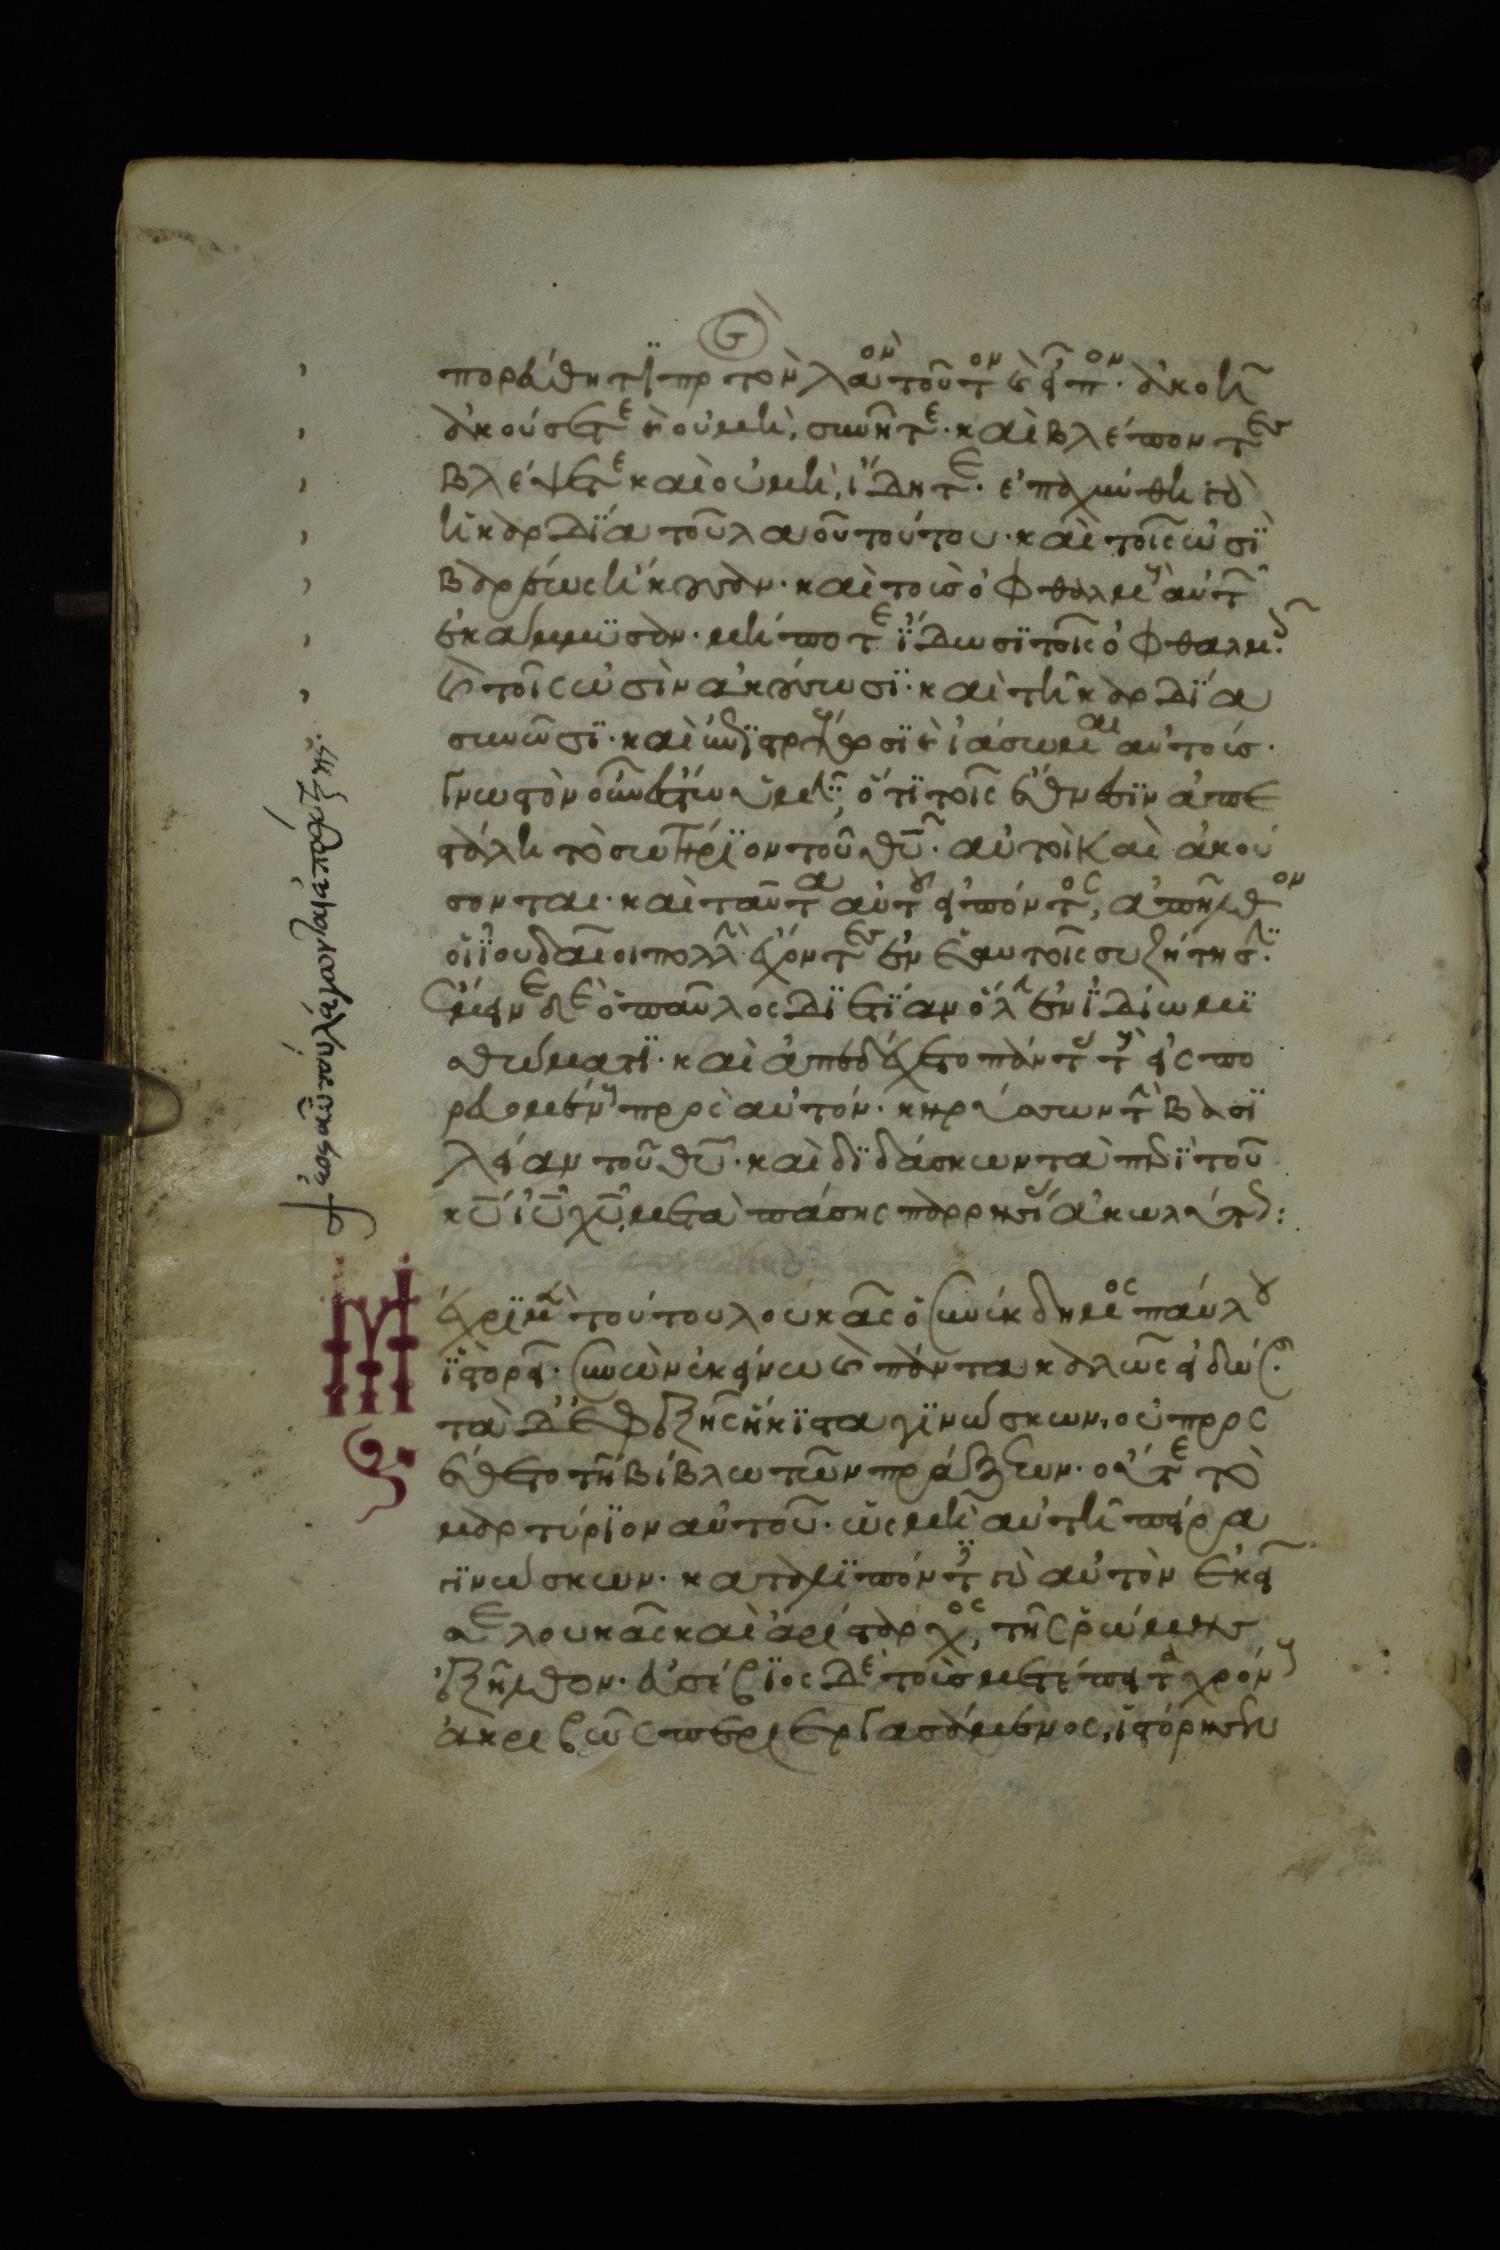 πορεύθητι πρ τὸν λαὸν τοῦτον καὶ εἰπόν· ἀκοῆ
ἀκούσετε καὶ οὐ μὴ συνῆτε· καὶ βλέποντες
βλέψετε καὶ οὐ μὴ ἴδητε· ἐπαχύνθη γὰρ
ἡ καρδία τοῦ λαοῦ τούτου· καὶ τοῖς ὠσὶ
βαρέως ἤκουσαν· καὶ τοὺς ὀφθαλμοὺς αὐτῶν
ἐκάμμυσαν· μή ποτε ἴδωσι τοῖς ὀφθαλμοῖς
καὶ τοῖς ὠσὶν ἀκούσωσι· καὶ τῇ καρδία
συνῶσι· καὶ ἐπιστρέψωσι καὶ ἰάσωμαι αὐτούς·
γνωστὸν οὖν ἔστω ὑμῖν, ὅτι τοῖς ἔθνεσιν ἀπε
στάλη τὸ σωτήριον τοῦ θυ· αὐτοὶ καὶ ἀκού
σονται· καὶ ταῦτα αὐτοῦ εἰπόντος, ἀπῆλθον
οἱ ἰουδαῖοι πολλὴν ἔχοντες ἐν ἑαυτοῖς συζήτησιν·
ἔμεινε δὲ ὁ παῦλος διετίαν ὅλην ἐν ἰδίω μι
σθώματι· καὶ ἀπεδέχετο πάντας τοὺς εἰσπο
ρευομένους πρὸς αὐτόν· κηρύσσων τὴν βασι
λείαν τοῦ θυ· καὶ διδάσκων τὰ περὶ τοῦ
κυ ιυ χυ, μετὰ πάσης παρρησίας ἀκωλύτως:
Μέχρι μὲν τούτου λουκᾶς ὁ συνέκδημος παύλου
ἱστορεῖ· συνὼν ἐκείνω καὶ πάντα καλῶς εἰδώς·
τὰ δὲ ἐφεξῆς ἥκιστα γινώσκων, οὐ προς
έθετο τῇ βίβλω τῶν πράξεων· οὔτε τὸ
μαρτύριον αὐτοῦ· ὡς μὴ αὐτὴ πείρα
γινώσκων· καταλιπόντες γὰρ αὐτὸν ἐκεῖ
σε λουκᾶς καὶ ἀρίσταρχος, τῆς ῥώμης
ἐξῆλθον· εὐσέβιος δὲ τοὺς μετέπειτα χρόνους
ἀκριβῶς περιεργασάμενος, ἱστόρησεν